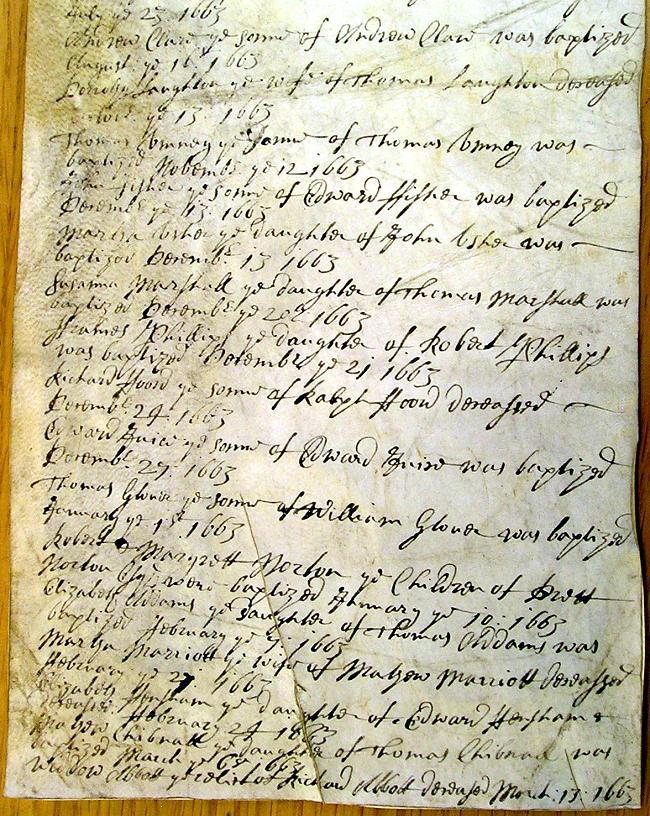 July ye 23. 1663
Andrew Clare ye sonne of Andrew Clare was baptized
August ye 16. 1663
Laughton ye wife of Thomas Laughton deceased
ye 13. 1663
Thomas Umney ye sonne of Thomas Umney was
baptized Novembr ye 12 1663
John Fisher ye sonne of Edward Ffisher was baptized
Decembr ye 13. 1663
Martha Usher ye daughter of John Usher was
baptized Decembr 13 1663
Susanna Marshall ye daughter of Thomas Marshall was
baptized Decembr ye 20 1663
Ffrances Phillips ye daughter of Robert Phillips
was baptized Decembr ye 21 1663
Richard Hoord ye sonne of Ralph Hoord deceased
Decembr 24. 1663
Edward ye sonne of Edward was baptized
Decembr 27. 1663
Thomas Glover ye sonne of William Glover was baptized
January ye 1st. 1663
Robert & Margrett Norton ye Children of Brett
Norton were baptized January ye 10. 1663
Elizabeth Addams ye daughter of Thomas Addams was
baptized February ye 7. 1663
Martha Marriott ye wife of Mathew Marriott deceased
February ye 1663
Elizabeth Hensham ye daughter of Edward Hensham
deceased February 24 1663
Chibnall ye daughter of Thomas Chibnall was
baptized March ye 6 1663
widdow Abbott ye relict of Richard Abbott deceased March. 13. 1663